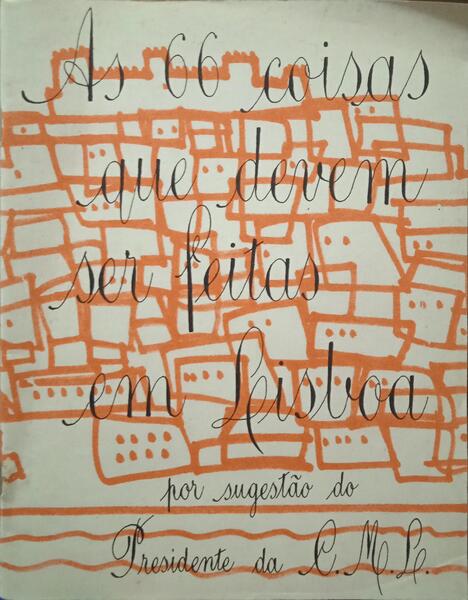 As 66 coisas
que devem
ser feitas
em Lisboa
por sugestão do
Presidente da C. M. L.